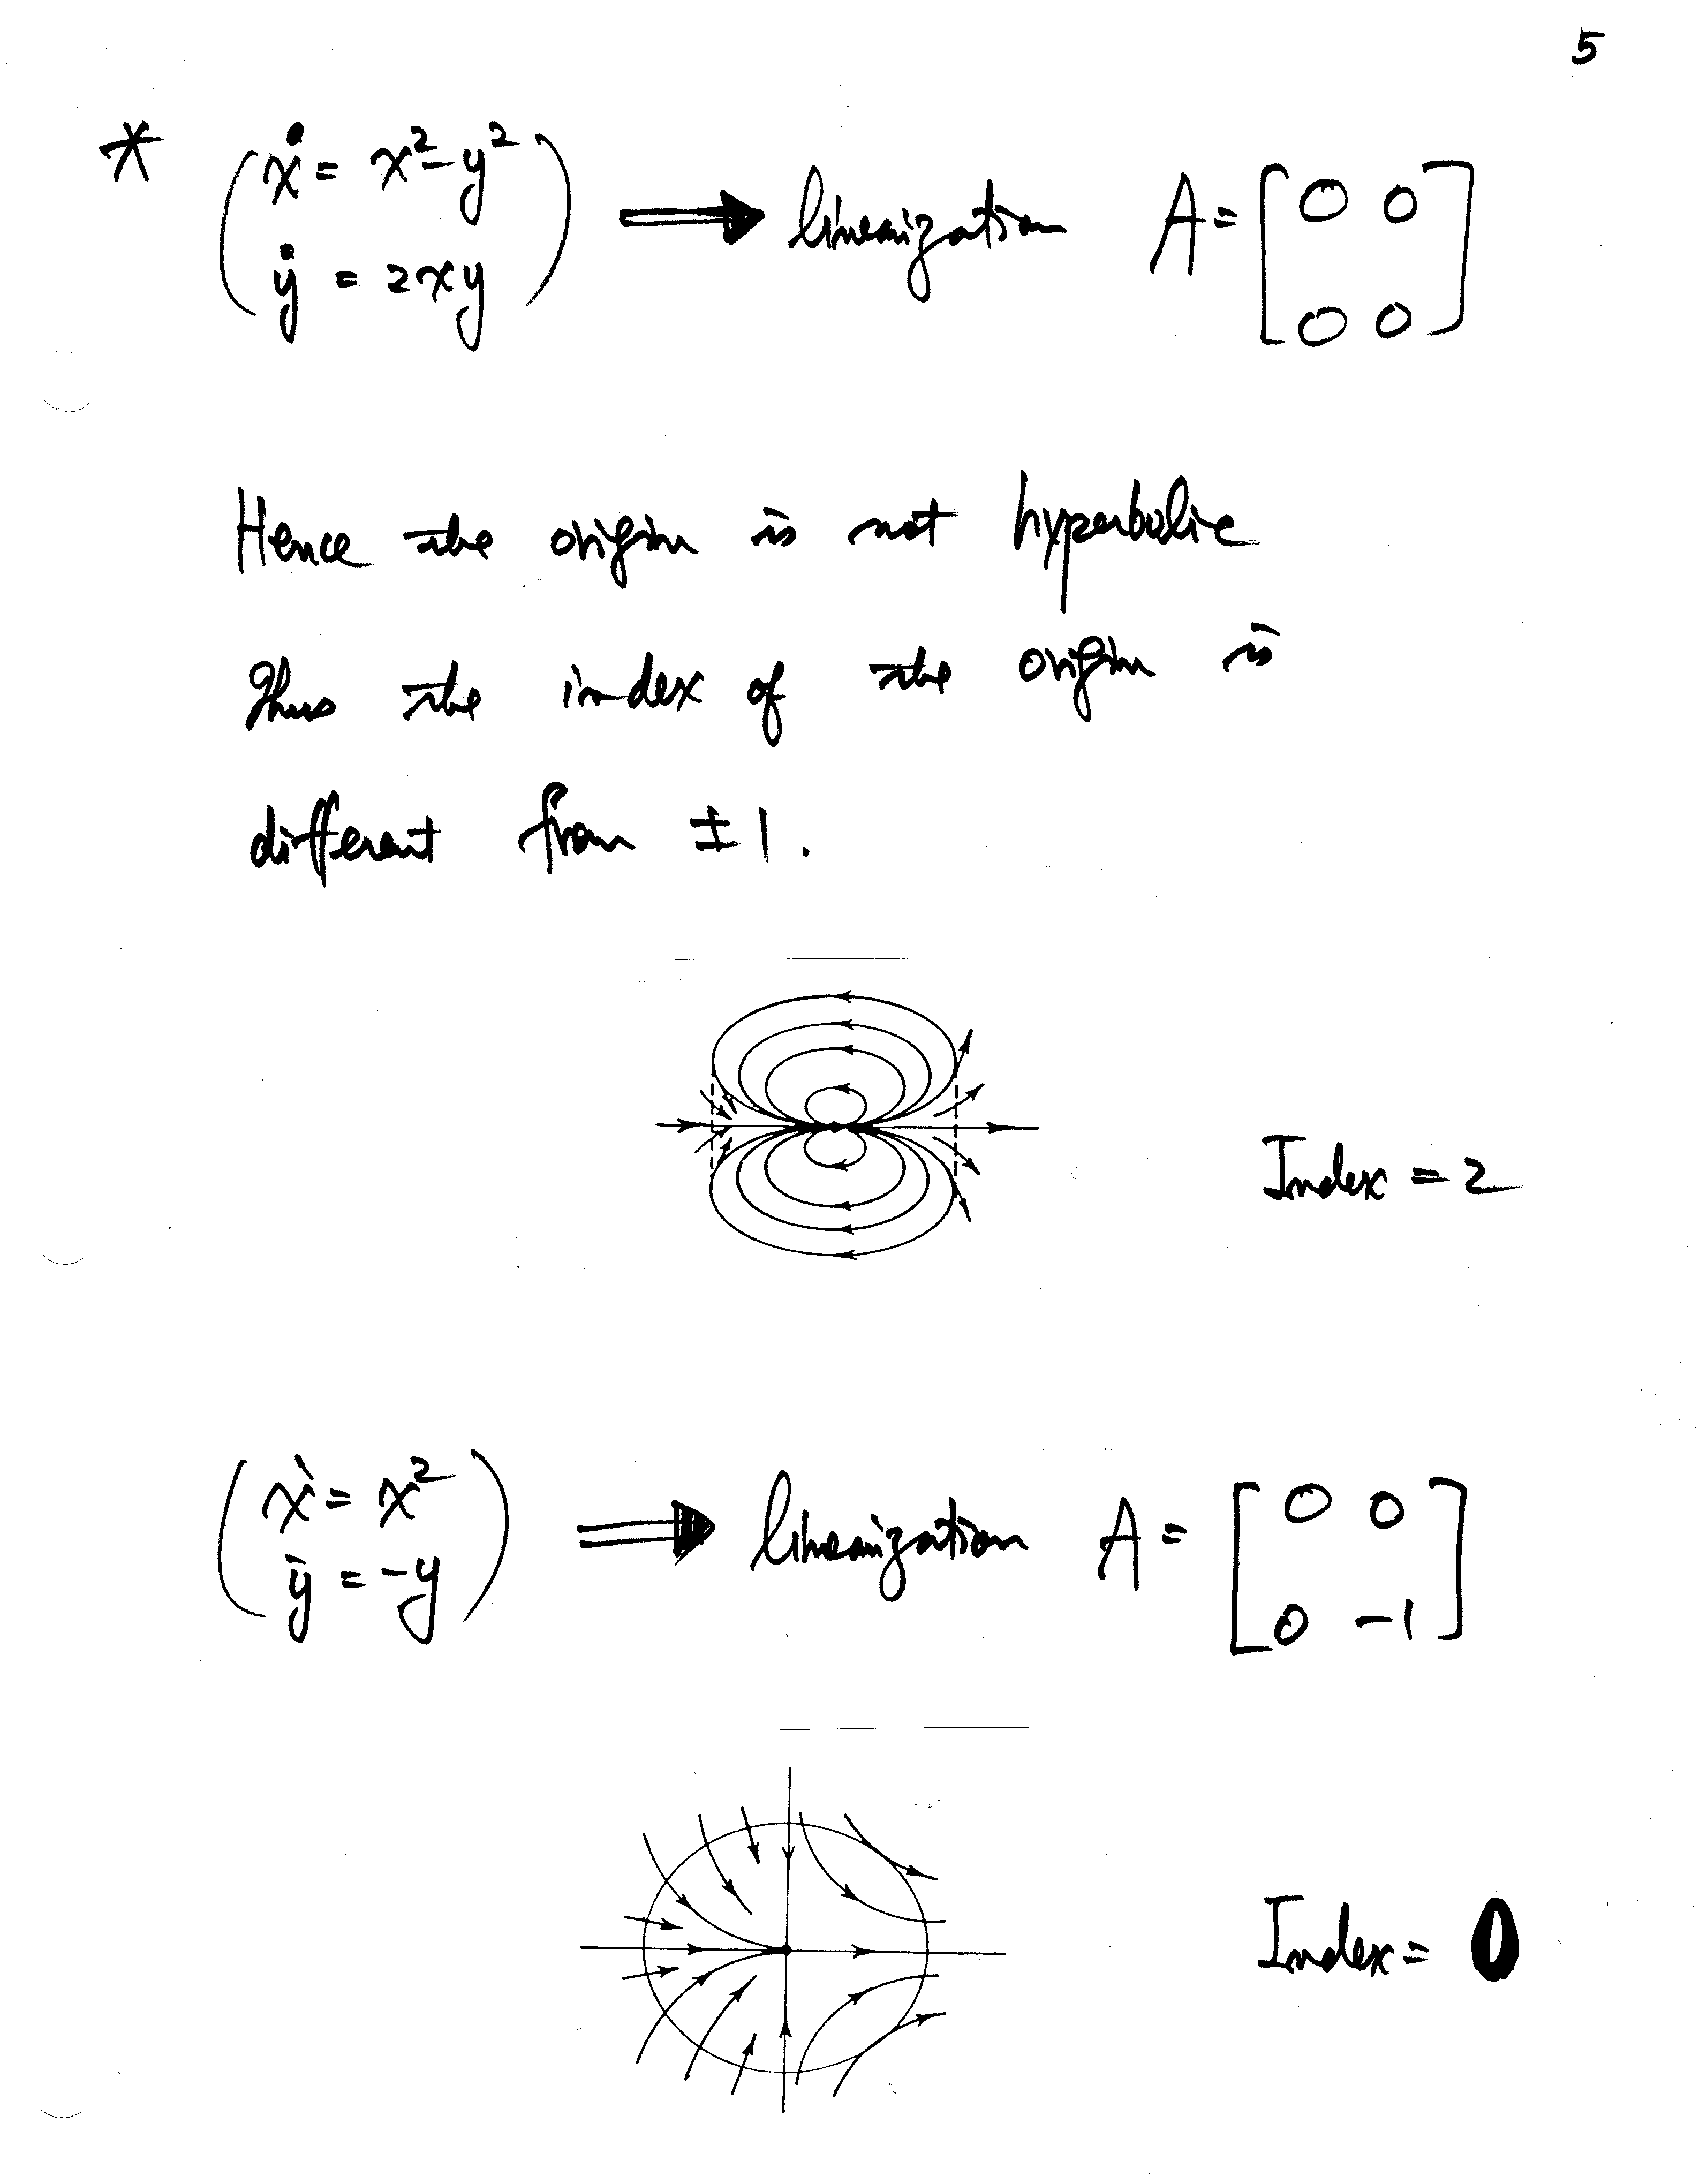 5
* ( ẋ = x² - y² ⟹ linearization A = [ 0 0
ẏ = 2xy ) 0 0 ]
Hence the origin is not hyperbolic
Thus the index of the origin is
different from ±1.
Index = 2
( ẋ = x² ⟹ linearization A = [ 0 0
ẏ = -y ) 0 -1 ]
Index = 0